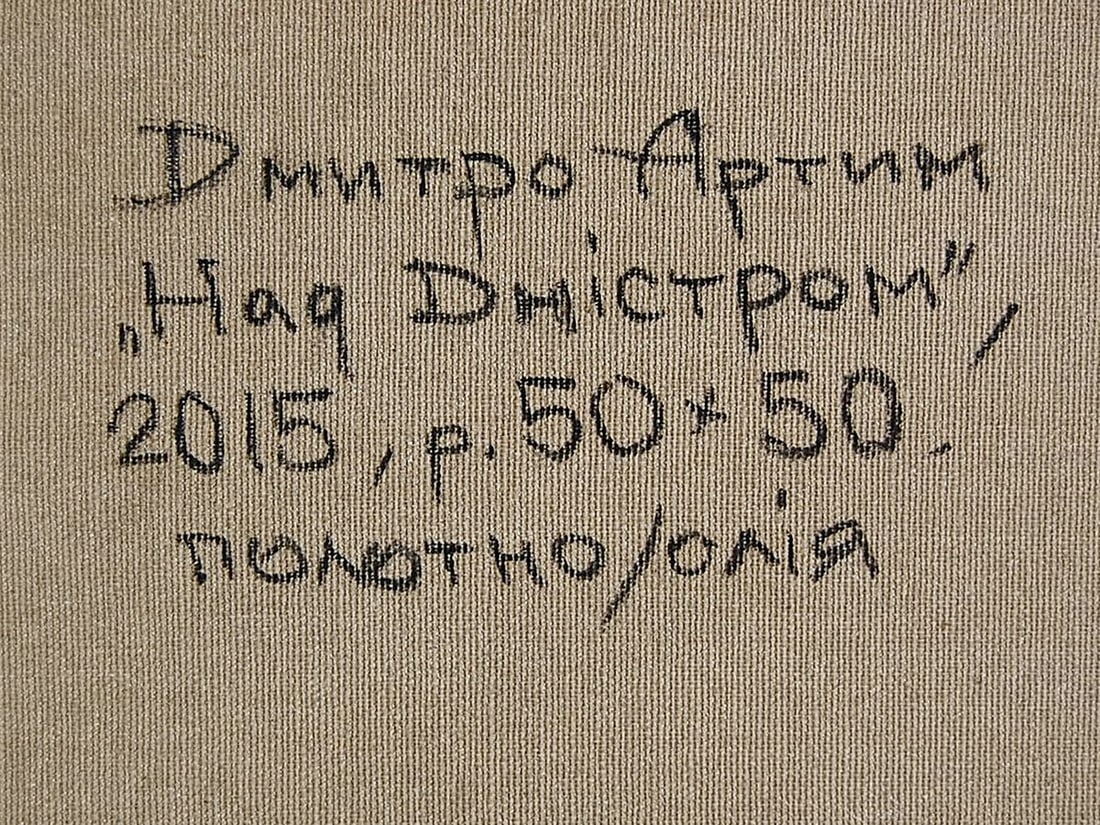 Дмитро Артим
„Над Дністром”,
2015, р. 50 × 50.
полотно/олія